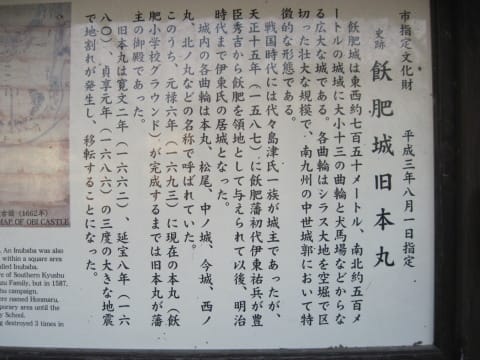 市指定文化財　平成三年八月一日指定
史跡　飫肥城旧本丸
飫肥城は東西約七百五十メートル、南北約五百メ
ートルの城域に大小十三の曲輪と犬馬場などからな
る広大な城である。各曲輪はシラス大地を空堀で区
切った壮大な規模で、南九州の中世城郭において特
徴的な形態である。
戦国時代には代々島津氏一族が城主であったが、
天正十五年（一五八七）に飫肥藩初代伊東祐兵が豊
臣秀吉から飫肥を領地として与えられて以後、明治
時代まで伊東氏の居城となった。
城内の各曲輪は本丸、松尾、中ノ城、今城、西ノ
丸、北ノ丸などの名称で呼ばれていた。
このうち、元禄六年（一六九三）に現在の本丸（飫
肥小学校グラウンド）が完成するまでは旧本丸が藩
主の御殿であった。
旧本丸は寛文二年（一六六二）、延宝八年（一六
八〇）、貞享元年（一六八六）の三度の大きな地震
で地割れが発生し、移転することになった。
古図（1662年）
MAP OF OBI CASTLE
, An Inubaba was also
within a square area
alled Inubaba.
e of Southern Kyushu
zu Family, but in 1587,
hu campaign.
were named Honmaru,
mporary area until the
y School.
ng destroyed 3 times in